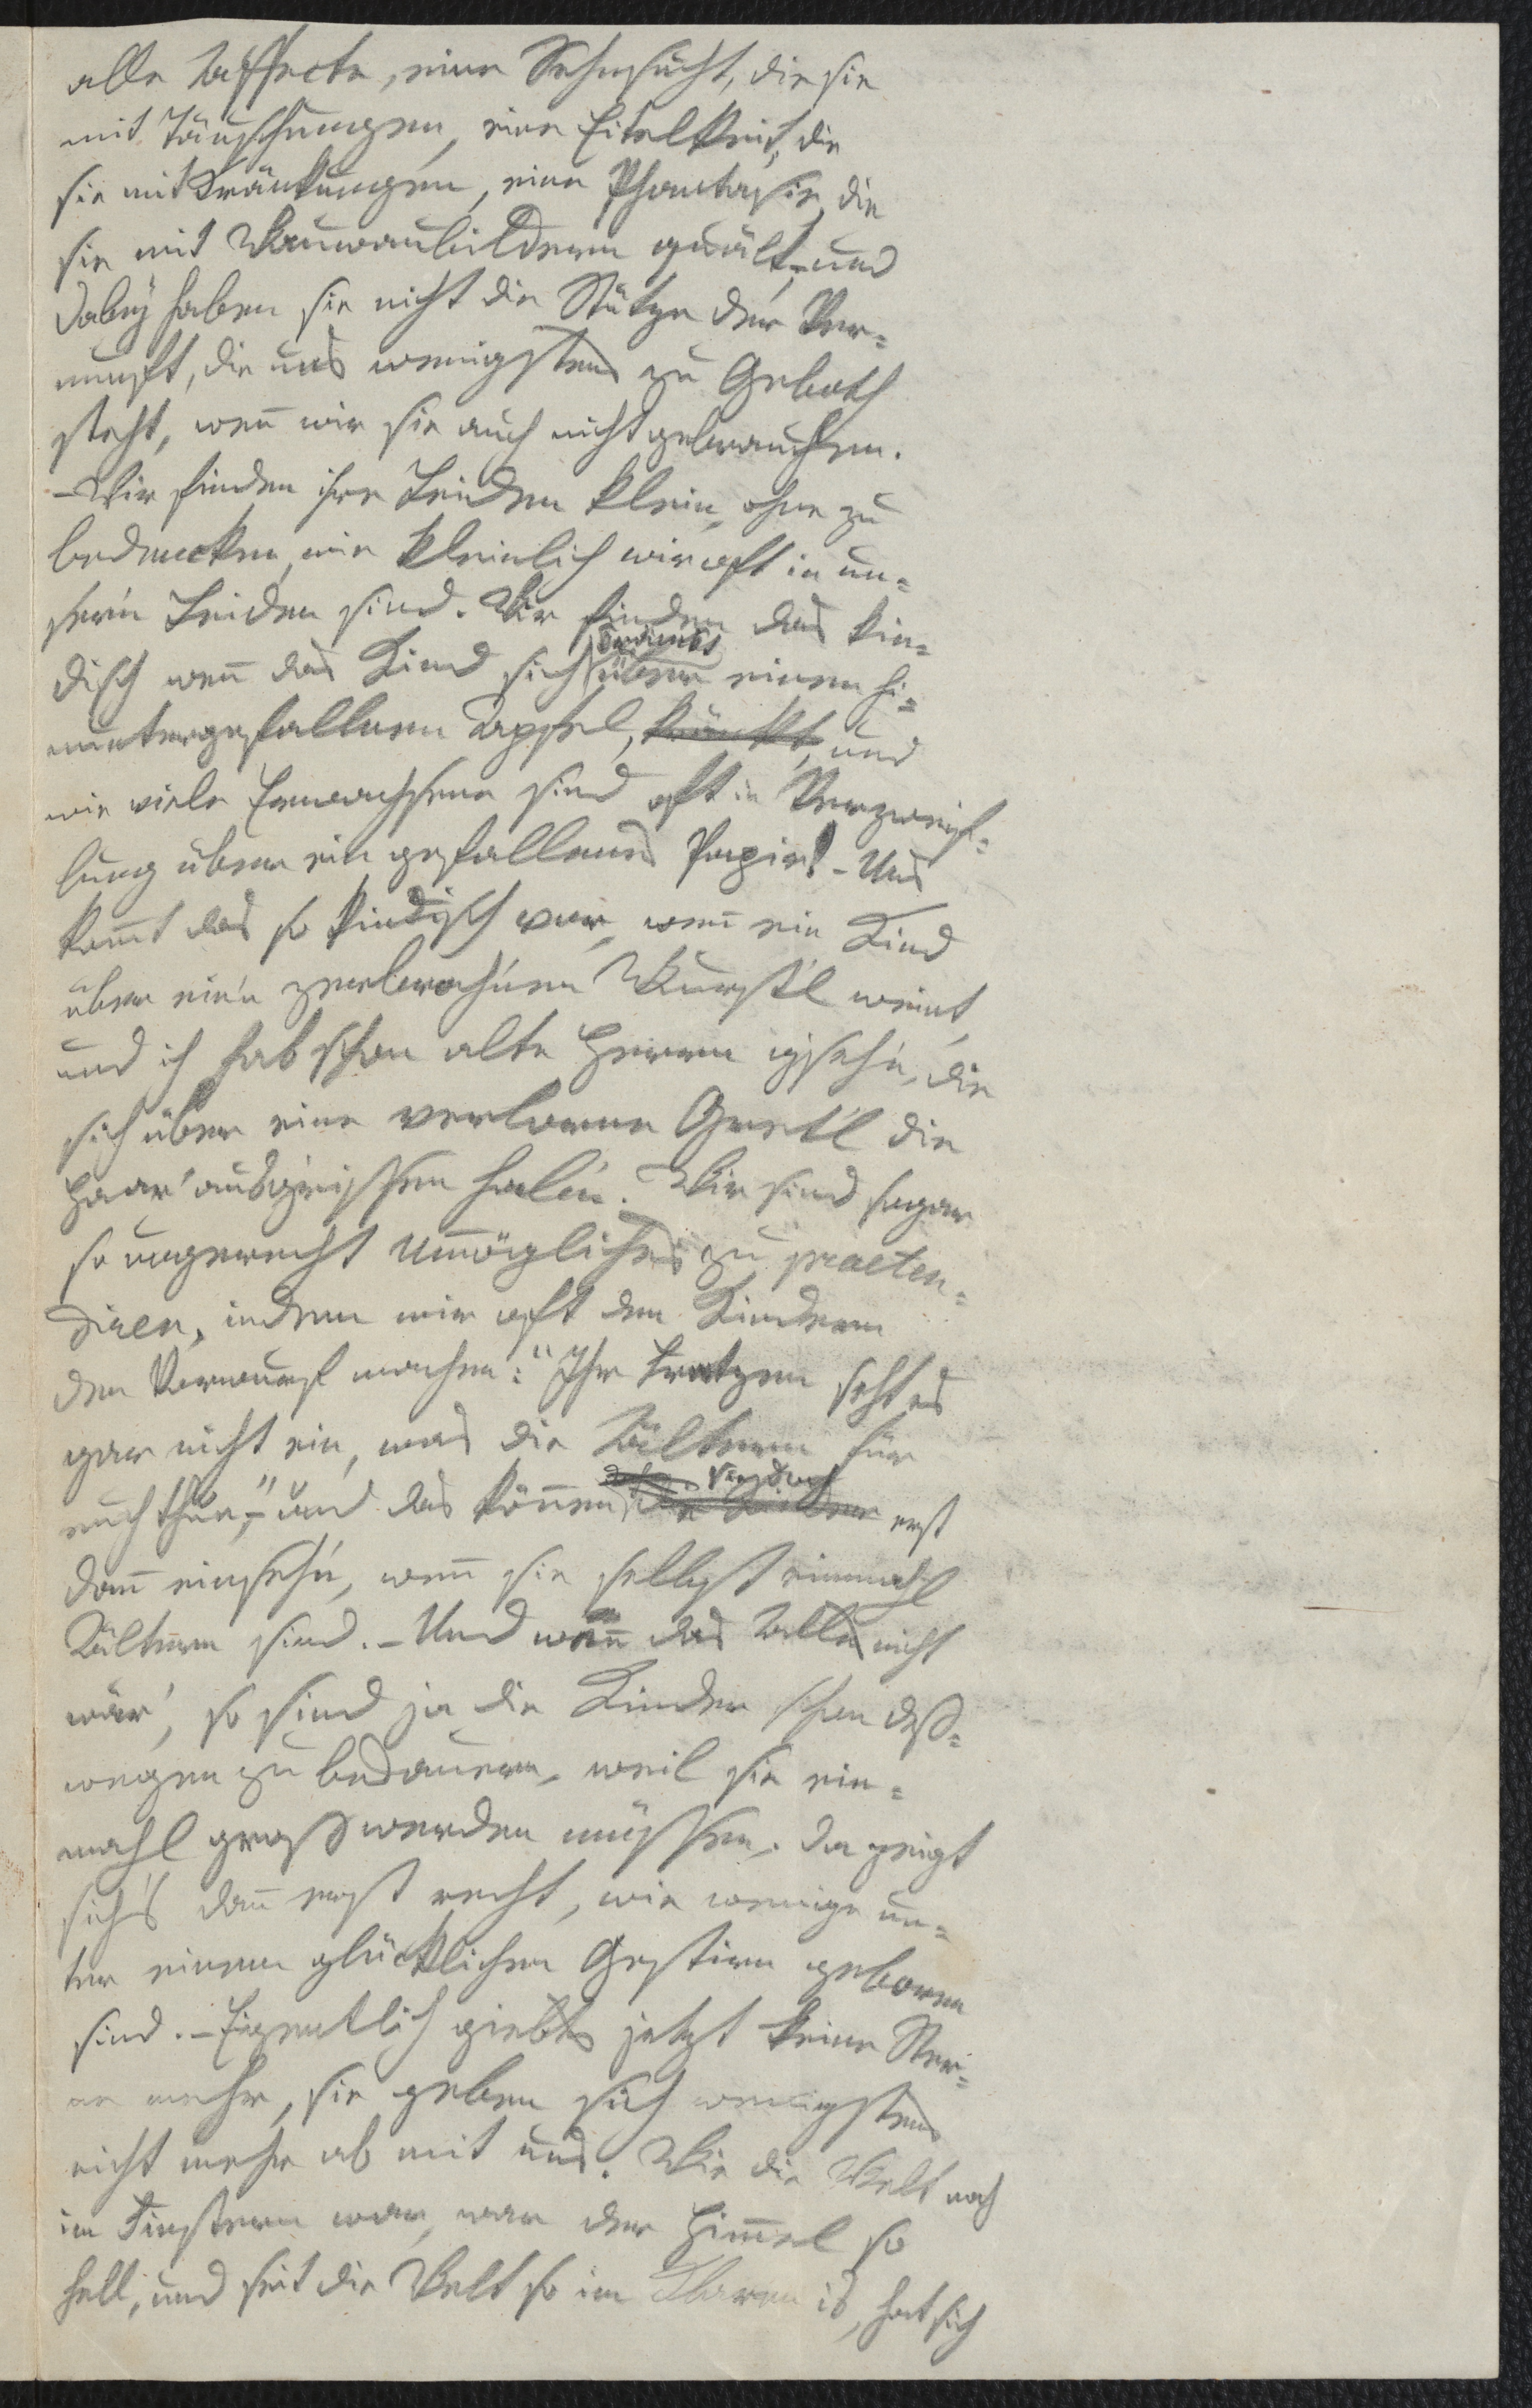 alle Affecte, eine Sehnsucht, die sie
mit Täuschungen, eine Eitelkeit, die
sie mit Kränkungen, eine Phantasie, die
sie mit Wauwaubildern quält, und
dabey haben sie nicht die Stütze der Ver=
nunft, die uns wenigstens zu Geboth
steht, wenn wir sie auch nicht gebrauchen.
– Wir finden ihre Leiden klein, ohne zu
bedencken, wie kleinlich wir oft in un=
sern Leiden sind. Wir finden das kin=
disch wenn das Kind sich über einen hi=
kränkt
nuntergefallnen Apfel, kränkt, und
wie viele Erwachsene sind oft in Verzweif=
lung über ein gefallenes Papier! – Uns
kommt das so kindisch vor, wenn ein Kind
über ein'n zerbroch'nen Wurst'l weint,
und ich hab schon alte Herren g'seh'n, die
sich über eine verlorne Gret'l die
Haar' ausg'rissen hab'n. Wir sind sogar
so ungerecht Unmögliches zu praeten=
diren, indem wir oft den Kindern
den Vorwurf machen: "Ihr Fratzen seht es
gar nicht ein, was die Ältern für
euch thun," – und das können die Kinder erst
dann einseh'n, wenn sie selbst einmahl
Ältern sind. – Und wenn das Alles nicht
wär', so sind ja die Kinder schon deß=
wegen zu bedauern, weil sie ein=
mahl groß werden müssen. Da zeigt
sich's dann erst recht, wie wenige un=
ter einem glücklichen Gestirn geboren
sind. – Eigentlich giebts jetzt keine Ster=
ne mehr, sie geben sich wenigstens
nicht mehr ab mit uns. Wie die Welt noch
im Finstern war, war der Himmel so
hell, und seit die Welt so im Klaren is, hat sich